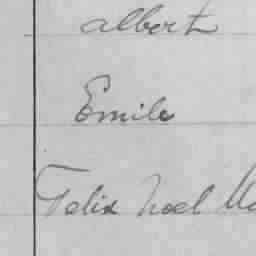 Albert
Emile
Felix Noel